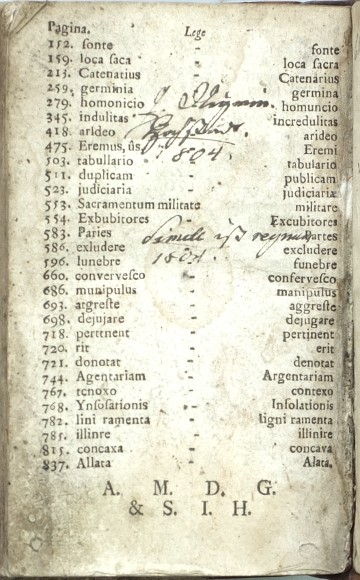 Pagina. Lege
152. fonte - fonte
159. loca ſaca - loca ſacra
213. Catenatius - Catenarius
259. germinia germina
279. homonicio homuncio
345. indulitas incredulitas
418. arideo arideo
475. Eremus, ûs Eremi
1804.
503. tabullario tabulario
511. duplicam - publicam
523. judiciaria - judiciariæ
553. Sacramentum militate militare
554. Exbubitores - Excubitores
583. Paries Partes
Simelt iſt regnum
586. exludere excludere
596. lunebre funebre
1804.
660. converveſco - conferveſco
686. munipulus - manipulus
693. atgreſte - aggreſte
698. dejujare - dejugare
718. perttnent - pertinent
720. rit - erit
721. donotat - denotat
744. Agentariam - Argentariam
767. tcnoxo - contexo
768. Ynſoſationis - Inſolationis
782. lini ramenta - ligni ramenta
785. illinre - illinire
815. concaxa - concava
837. Allata - Alata.
A. M. D. G.
& S. I. H.